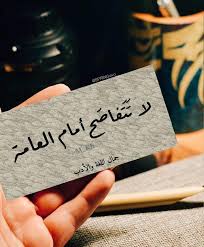 لا تتفاصح أمام العامة
جمال اللغة والأدب